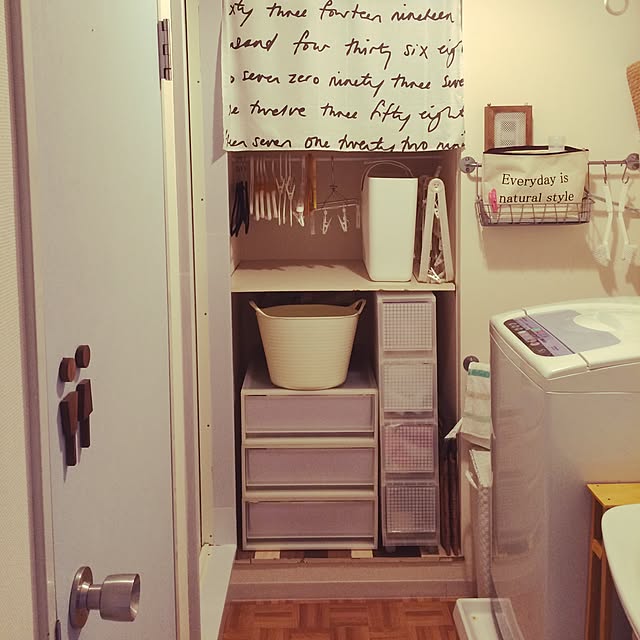 three fourteen nineteen
four thirty six
seven zero ninety three
twelve three fifty eight
seven one twenty two
Everyday is
natural style